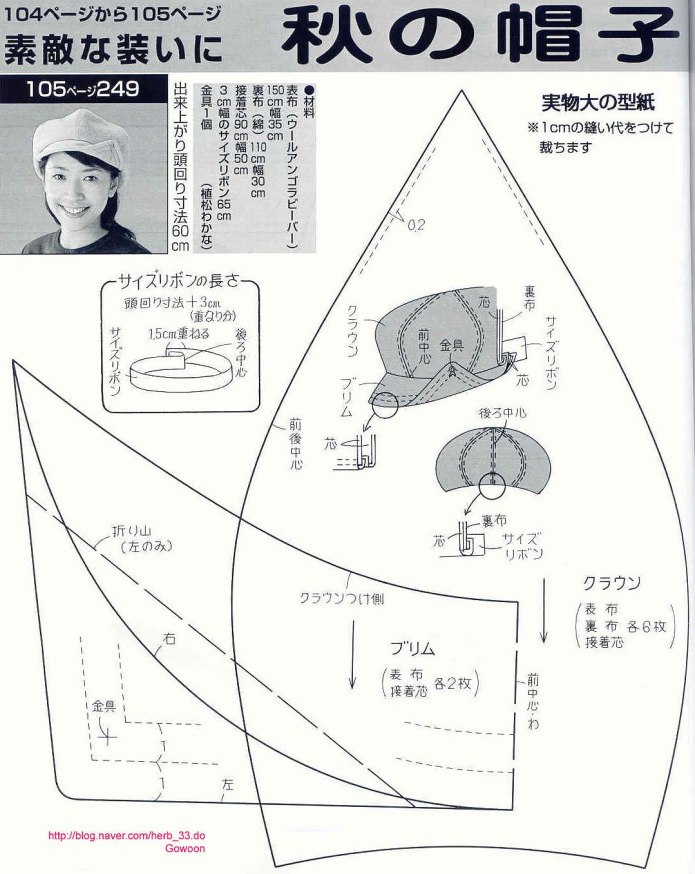 104ページから105ページ
素敵な装いに
秋の帽子
105ページ249
出来上がり頭回り寸法60cm
●材料
表布(ウールアンゴラビーバー)
150cm幅35cm
裏布(綿)110cm幅30cm
接着芯90cm幅50cm
3cm幅のサイズリボン65cm
金具1個
(植松わかな)
実物大の型紙
※1cmの縫い代をつけて
裁ちます
0.2
サイズリボンの長さ
頭回り寸法+3cm
(重なり分)
1.5cm重ねる
後ろ中心
サイズリボン
クラウン
前中心
金具
芯
裏布
サイズリボン
芯
ブリム
芯
前後中心
後ろ中心
裏布
芯
サイズ
リボン
折り山
(左のみ)
クラウンつけ側
クラウン
表布
裏布 各6枚
接着芯
右
ブリム
表布
接着芯 各2枚
前中心・わ
金具
左
http://blog.naver.com/herb_33.do
Gowoon